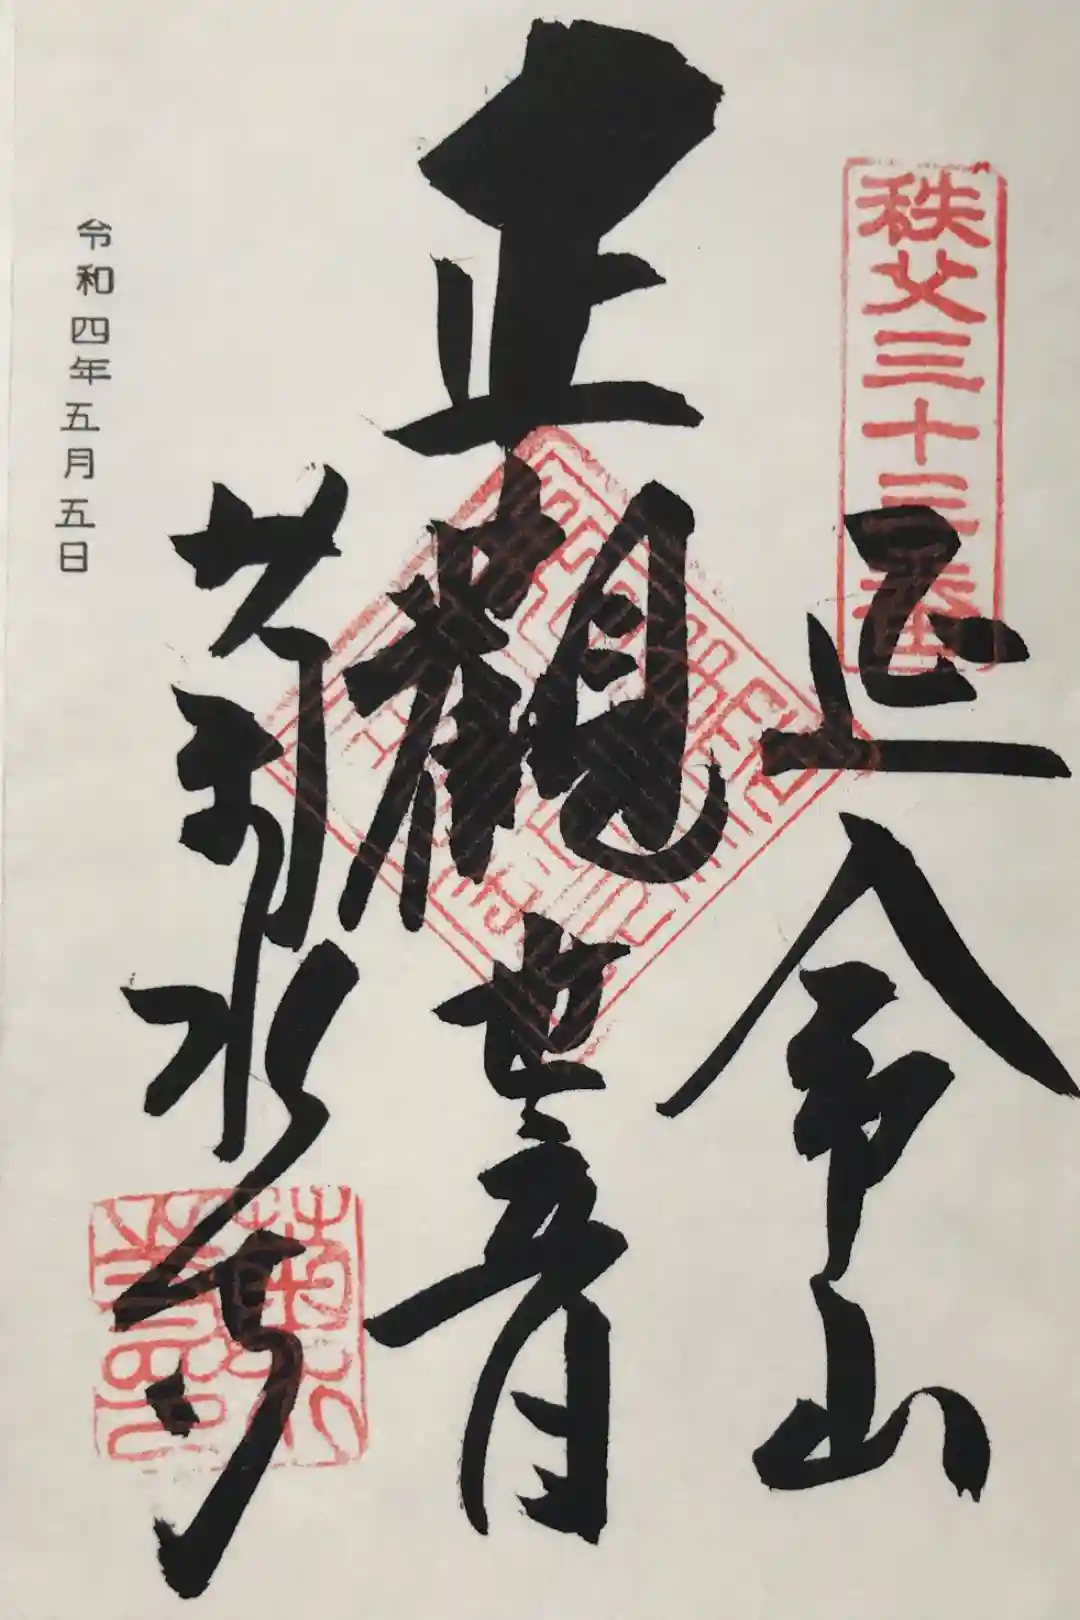 秩父三十三番
延命山
正観世音
菊水寺
令和四年五月五日